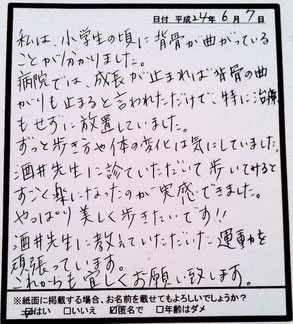 日付 平成24年 6月 7日
私は、小学生の頃に背骨が曲がっている
ことが分かりました。
病院では、成長が止まれば背骨の曲
がりも止まると言われただけで、特に治療
もせずに放置していました。
ずっと歩き方や体の変化は気にしていました。
酒井先生に診ていただいて歩いてみると
すごく楽になったのが実感できました。
やっぱり美しく歩きたいです!!
酒井先生に教えていただいた運動を
頑張っています。
これからも宜しくお願い致します。
※紙面に掲載する場合、お名前を載せてもよろしいでしょうか?
はい □いいえ ☑匿名で □年齢はダメ